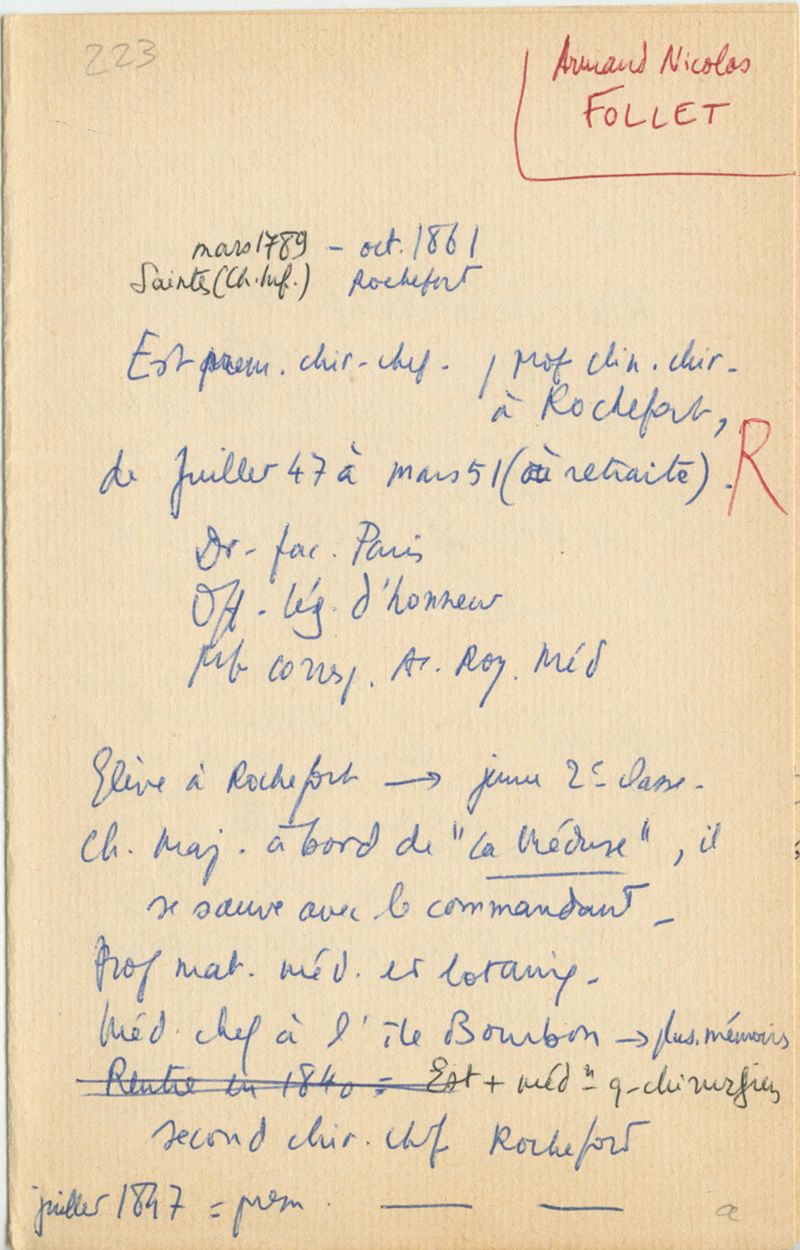 223
Armand Nicolas
FOLLET
mars 1789 - oct. 1861
Saintes (Ch. Inf.) Rochefort
Est prem. chir-chef. , prof clin. chir-
à Rochefort,
de Juillet 47 à mars 51 (où retraite). R
Dr- fac. Paris
Off. lég. d'honneur
Mb corresp. Ac. Roy. Méd
Elève à Rochefort → jeune 2e classe.
Ch. Maj. à bord de "La Méduse", il
se sauve avec le commandant_
Prof mat. méd. et botaniq.
Méd. chef à l'île Bourbon → plus. mémoires
Rentre en 1840 = Est + médn q-chirurgien
second chir. chef Rochefort
juillet 1847 = prem. — —
a